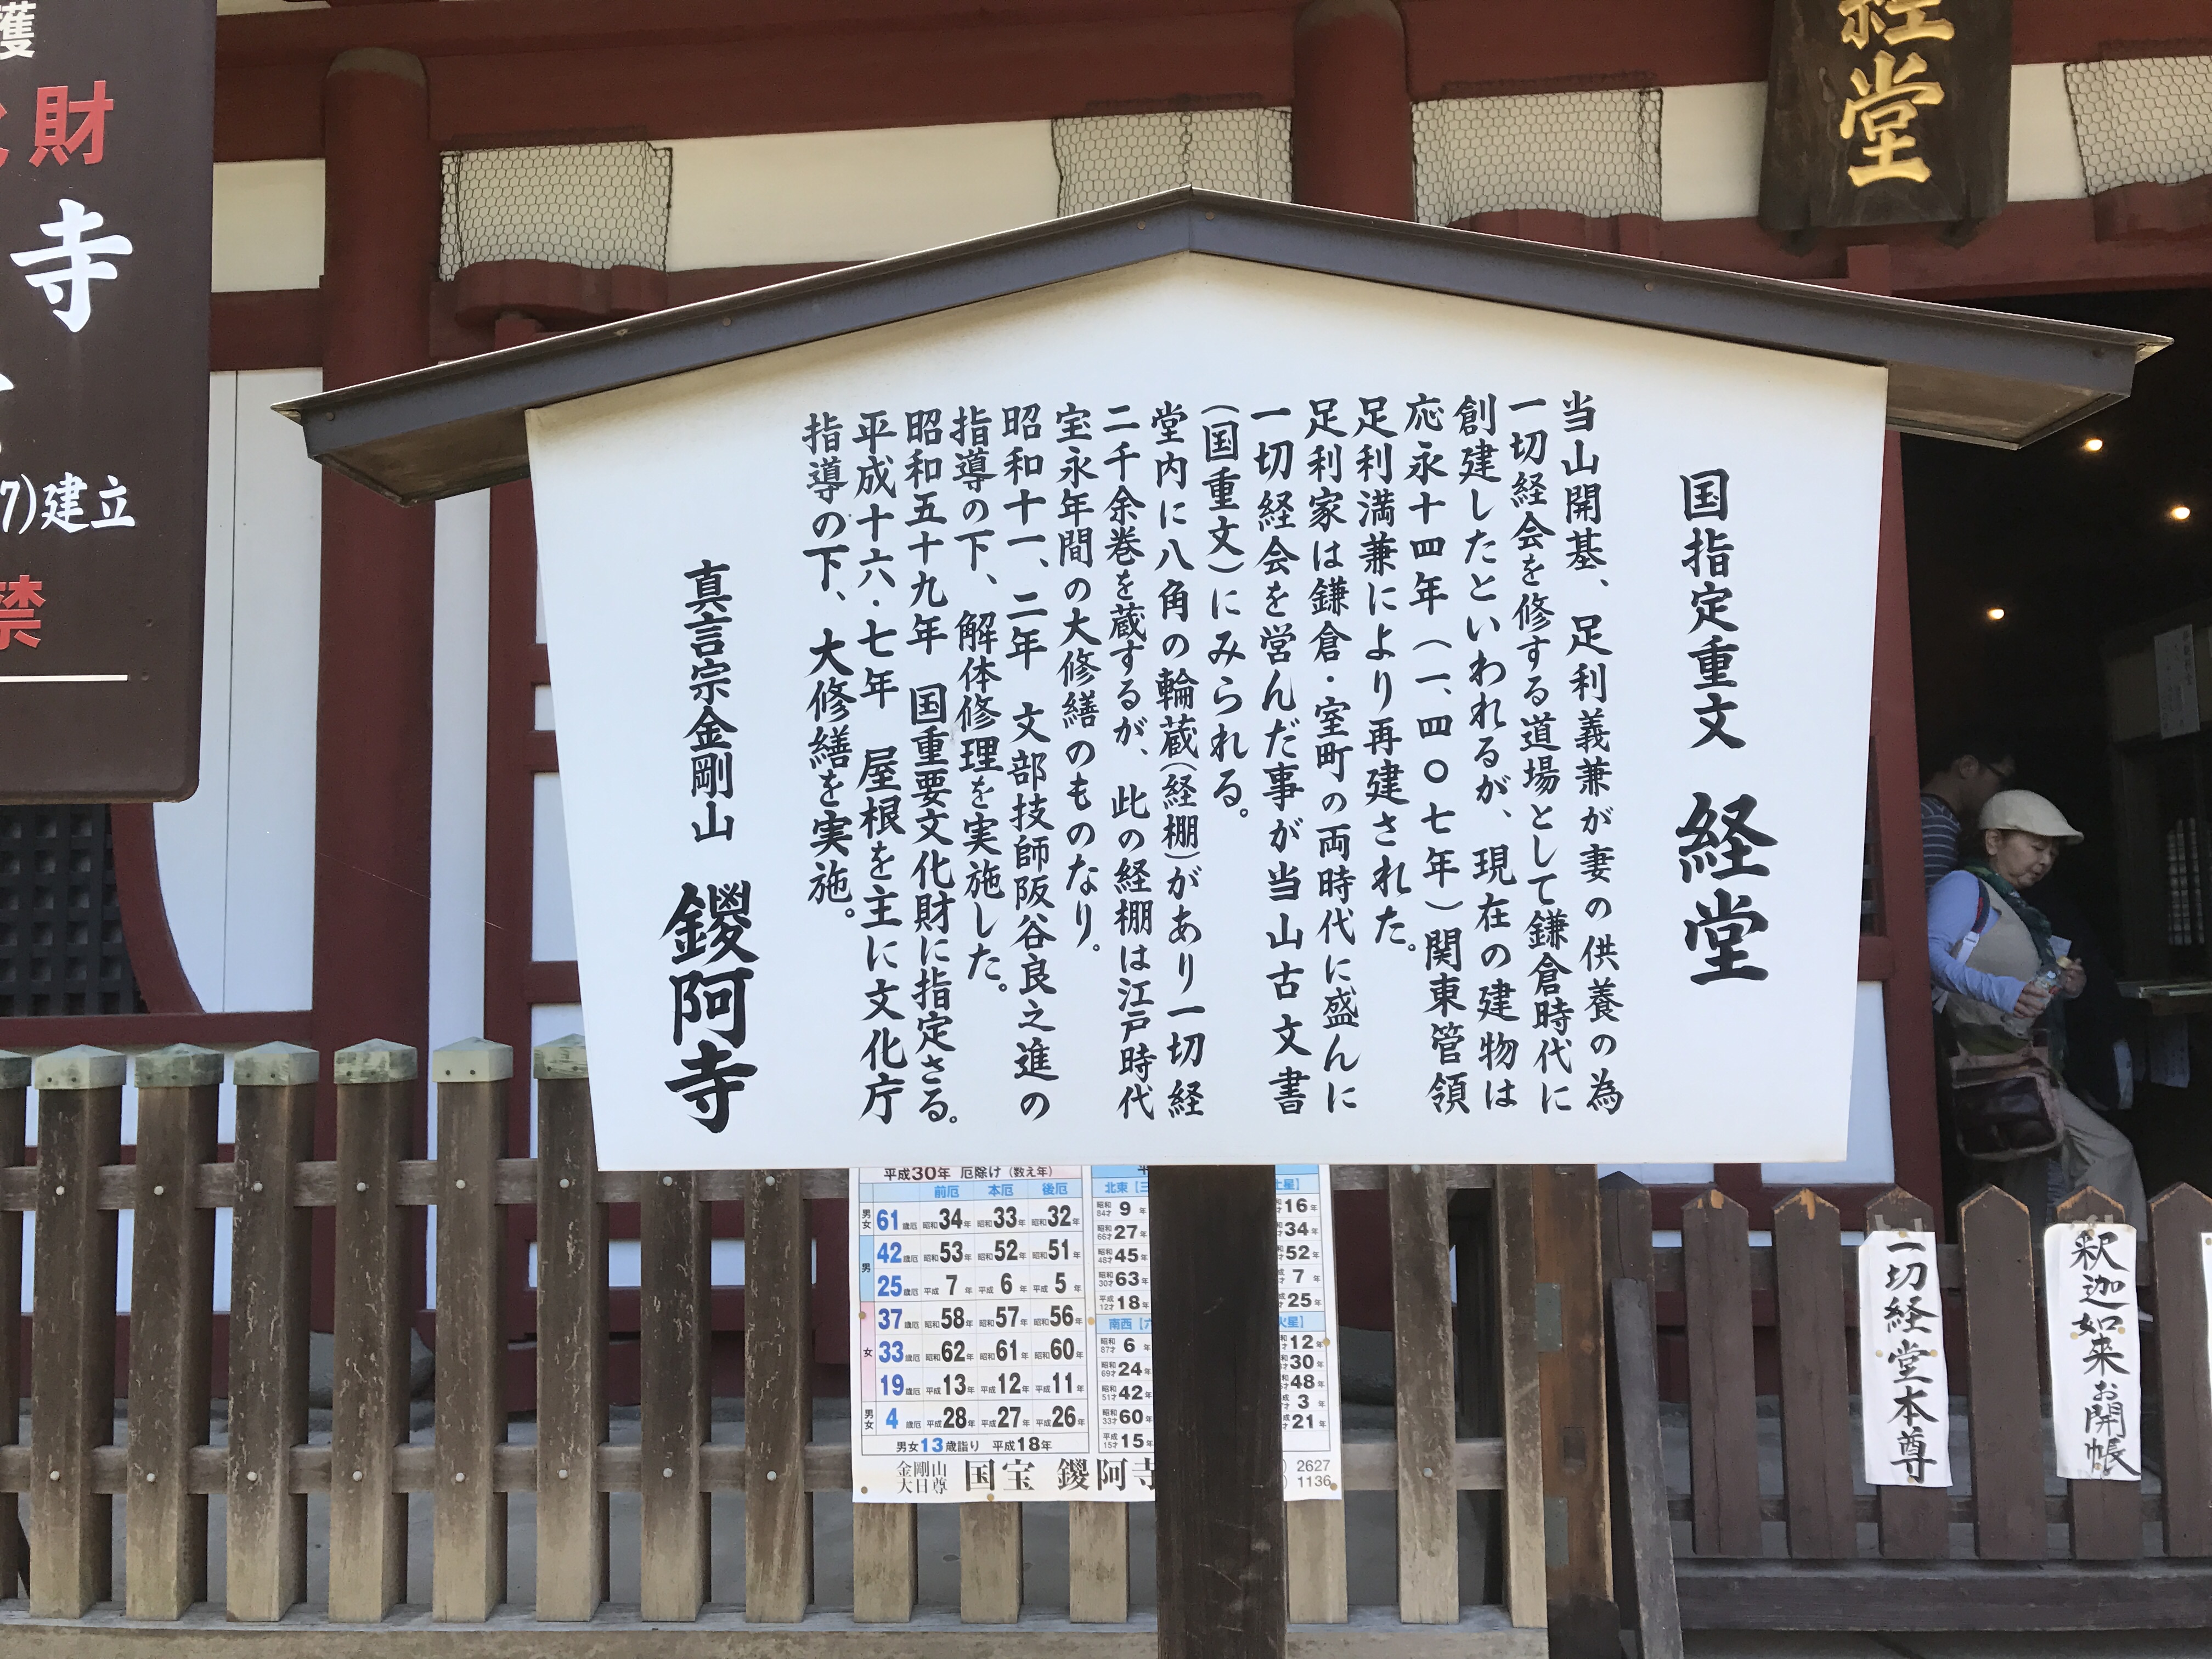 国指定重文 経堂
当山開基、足利義兼が妻の供養の為
一切経会を修する道場として鎌倉時代に
創建したといわれるが、現在の建物は
応永十四年(一、四〇七年)関東管領
足利満兼により再建された。
足利家は鎌倉・室町の両時代に盛んに
一切経会を営んだ事が当山古文書
(国重文)にみられる。
堂内に八角の輪蔵(経棚)があり一切経
二千余巻を蔵するが、此の経棚は江戸時代
宝永年間の大修繕のものなり。
昭和十一、二年 文部技師阪谷良之進の
指導の下、解体修理を実施した。
昭和五十九年 国重要文化財に指定さる。
平成十六・七年 屋根を主に文化庁
指導の下、大修繕を実施。
真言宗金剛山 鑁阿寺
経堂
護
財
寺
7)建立
禁
平成30年 厄除け(数え年)
前厄 本厄 後厄
男女 61歳厄 昭和34年 昭和33年 昭和32年
男 42歳厄 昭和53年 昭和52年 昭和51年
25歳厄 平成7年 平成6年 平成5年
37歳厄 昭和58年 昭和57年 昭和56年
女 33歳厄 昭和62年 昭和61年 昭和60年
19歳厄 平成13年 平成12年 平成11年
男女 4歳厄 平成28年 平成27年 平成26年
男女13歳詣り 平成18年
北東【三
昭和84才 9年
昭和66才 27年
昭和48才 45年
昭和30才 63年
平成12才 18年
南西【六
昭和87才 6年
昭和69才 24年
昭和51才 42年
昭和33才 60年
平成15才 15年
土星】
16年
34年
52年
7年
25年
火星】
12年
30年
48年
3年
21年
金剛山
大日尊
国宝 鑁阿寺
2627
1136
一切経堂本尊
釈迦如来お開帳